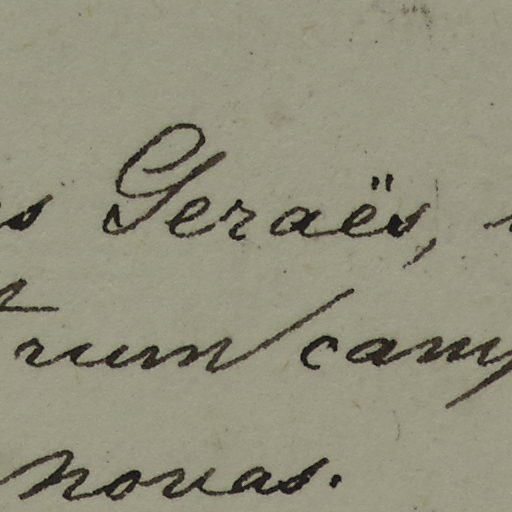 s Geraës,
rum camp
novas.